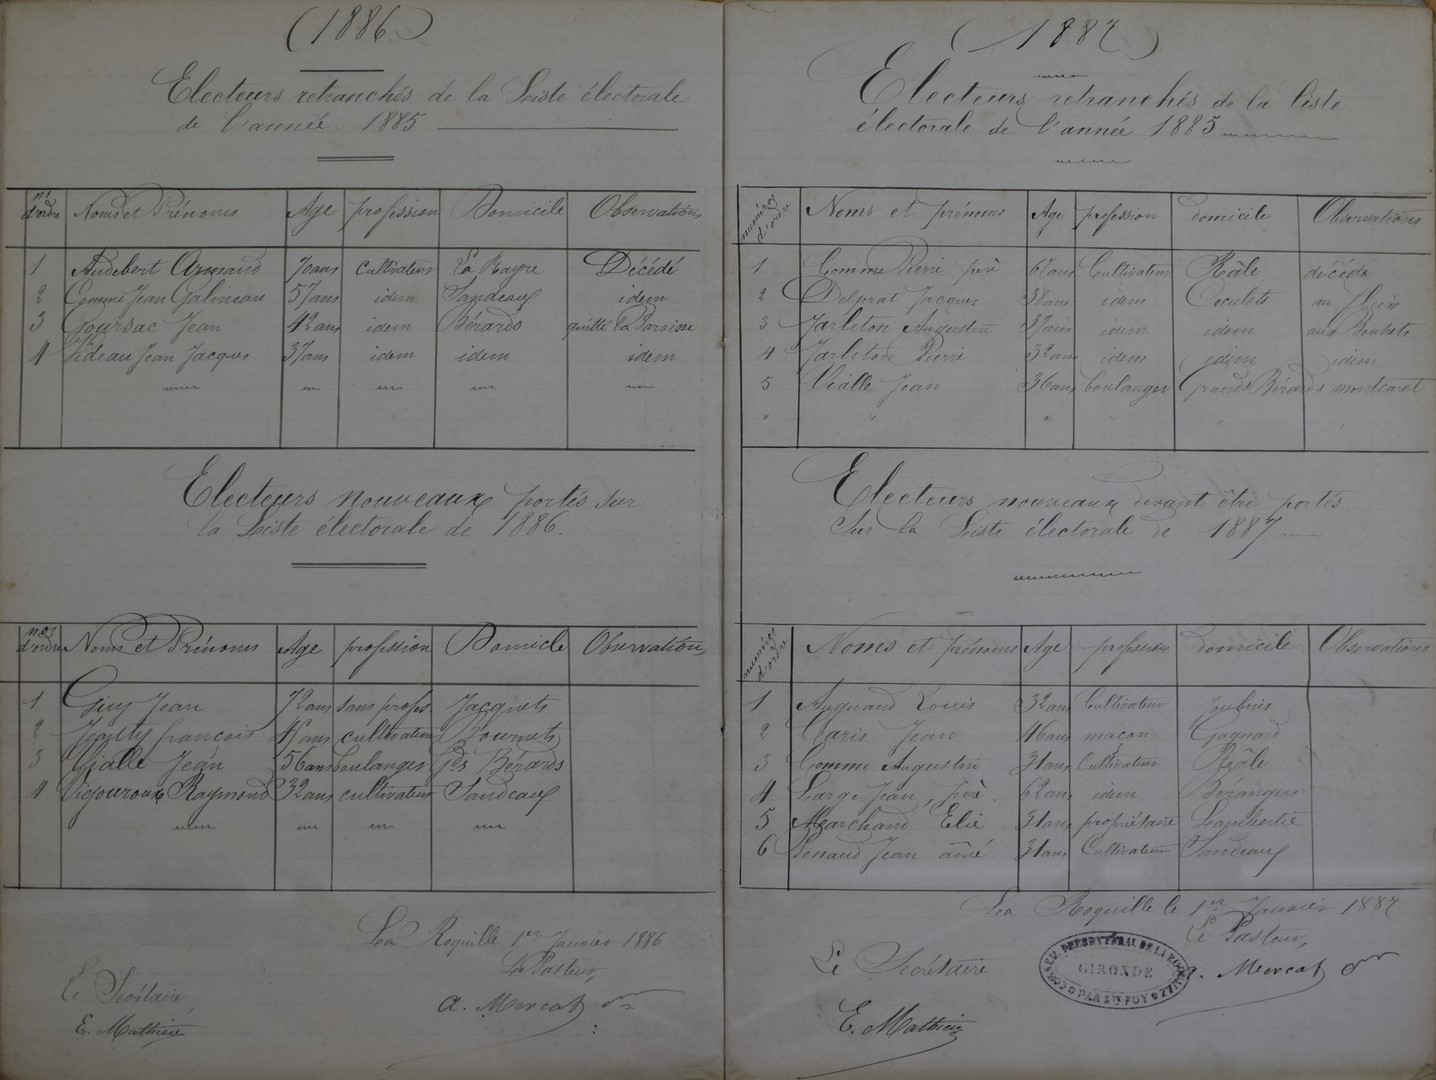 (1886)
Electeurs retranchés de la Liste électorale
de l'année 1885
nos d'ordre Noms et Prénoms Age profession Domicile Observations
1 Audebert Armand 70 ans cultivateur La Rayre Décédé
2 Comme Jean Galineau 57 ans idem Sandeaux idem
3 Goursac Jean 42 ans idem Bérards quitté la Paroisse
4 Videau Jean Jacques 37 ans idem idem idem
Electeurs nouveaux portés sur
la Liste électorale de 1886.
nos d'ordre Noms et Prénoms Age profession Domicile Observations
1 Guy Jean 72 ans sans profes. Jacquets
2 françois ans cultivateur Bournets
3 Vialle Jean 56 ans boulanger Gds Bérards
4 Vigouroux Raymond 32 ans cultivateur Sandeaux
La Roquille 1er Janvier 1886
Le Pasteur,
Le Secrétaire
A. Mercat
E. Mathieu
(1887)
Electeurs retranchés de la liste
électorale de l'année 1885
numéros d'ordre Noms et prénoms Age profession domicile Observations
1 Comme Pierre père ans Cultivateur Râle décédé
2 Delprat Jacques 38 ans idem au
3 Jarleton Augustin 37 ans idem idem aux Bouhets
4 Jarleton Pierre 32 ans idem idem idem
5 Vialle Jean 36 ans boulanger Grands Bérards montcaret
Electeurs nouveaux devant être portés
sur la Liste électorale de 1887
numéros d'ordre Noms et prénoms Age profession domicile Observations
1 Louis 32 ans Cultivateur
2 Caris Jean 46 ans maçon Gagnard
3 Comme Augustin 31 ans Cultivateur Râle
4 Large Jean, père 62 ans idem Bérangers
5 Marchand Elie 31 ans propriétaire Lambertie
6 Jean aîné 31 ans Cultivateur Sandeaux
La Roquille le 1er Janvier 1887
Le Pasteur,
Le Secrétaire
A. Mercat
CONSEIL PRESBYTÉRAL DE LA ROQUILLE
GIRONDE
E. Mathieu